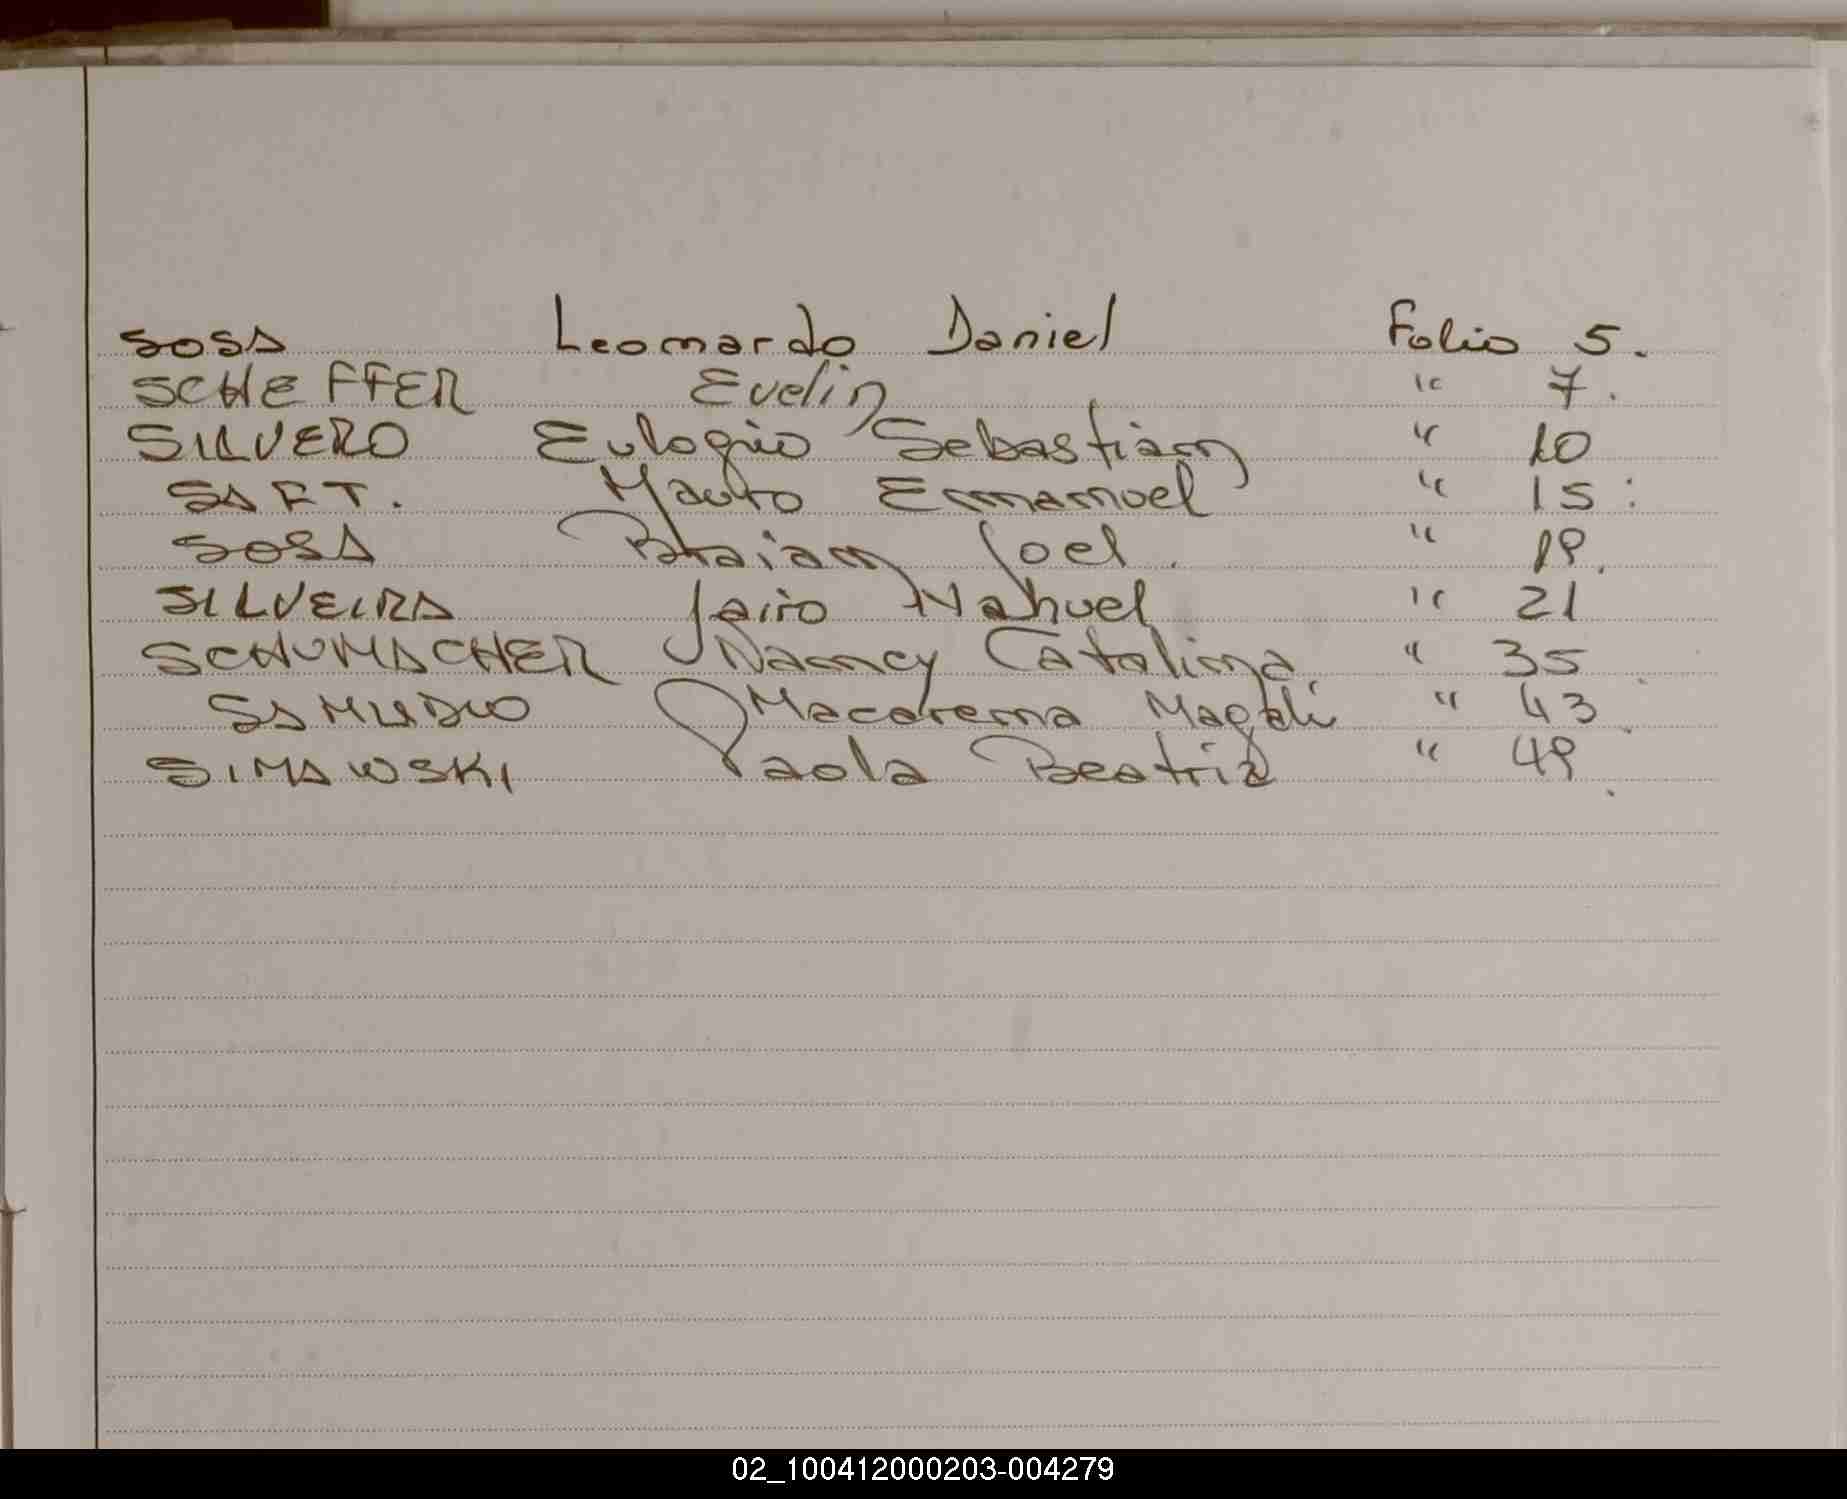 SOSA Leonardo Daniel Folio 5.
SCHEFFER Evelin " 7.
SILVERO Eulogio Sebastian " 10
SAFT. Mauro Emmanuel " 15:
SOSA Braian Joel. " 19.
SILVEIRA Jairo Nahuel " 21
SCHUMACHER Nancy Catalina " 35.
SAMUDIO Macarena Magali " 43.
SIMAWSKI Paola Beatriz " 49.
02_100412000203-004279